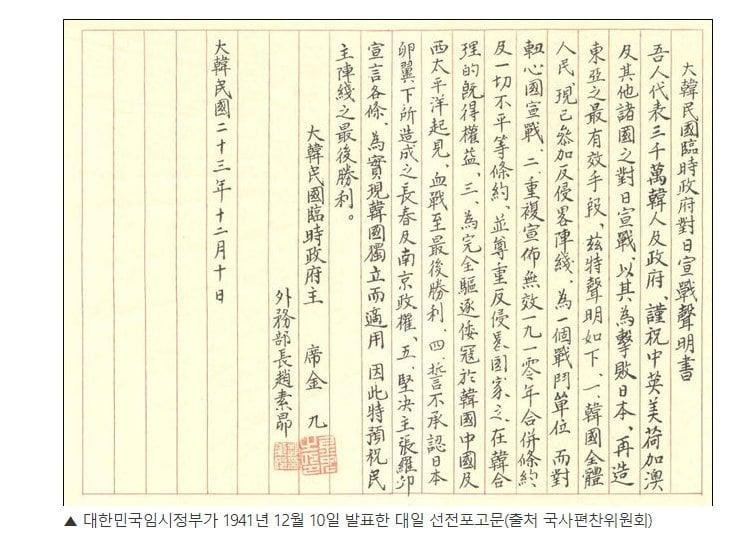 大韓民國臨時政府對日宣戰聲明書
吾人代表三千萬韓人及政府、謹祝中英美荷加澳
及其他諸國之對日宣戰、以其為擊敗日本、再造
東亞之最有效手段、玆特聲明如下、一、韓國全體
人民、現已參加反侵畧陣綫、為一個戰鬥單位、而對
軸心國宣戰、二、重複宣佈無效一九一零年合併條約
及一切不平等條約、並尊重反侵畧國家之、在韓合
理的既得權益、三、為完全驅逐倭寇於韓國中國及
西太平洋起見、血戰至最後勝利、四、誓不承認日本
卵翼下所造成之長春及南京政權、五、堅決主張羅卯
宣言各條、為實現韓國獨立而適用、因此特預祝民
主陣綫之最後勝利。
大韓民國臨時政府主席金九
外務部長趙素昂
大韓民國二十三年十二月十日
▲ 대한민국임시정부가 1941년 12월 10일 발표한 대일 선전포고문(출처 국사편찬위원회)